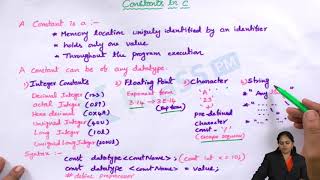 Constants in C
A Constant is a :-
* Memory location uniquely identified by an identifier
* holds only one value
* Throughout the program execution
A constant can be of any datatype:
1) Integer Constants
Decimal Integer (123)
octal Integer (037)
Hexa decimal
Unsigned Integer (40U)
Long Integer (10L)
Unsigned Long Integer
2) Floating Point
Exponent form
3.14 → 3E-14
3) Character
'A'
'23'
'+'
pre-defined
character
const '\'
(escape sequence)
4) String
" Any
" "
Syntax:-
const datatype <constName> ; (const int x = 10;)
const datatype <constName> = value;
# define preprocessor
PM